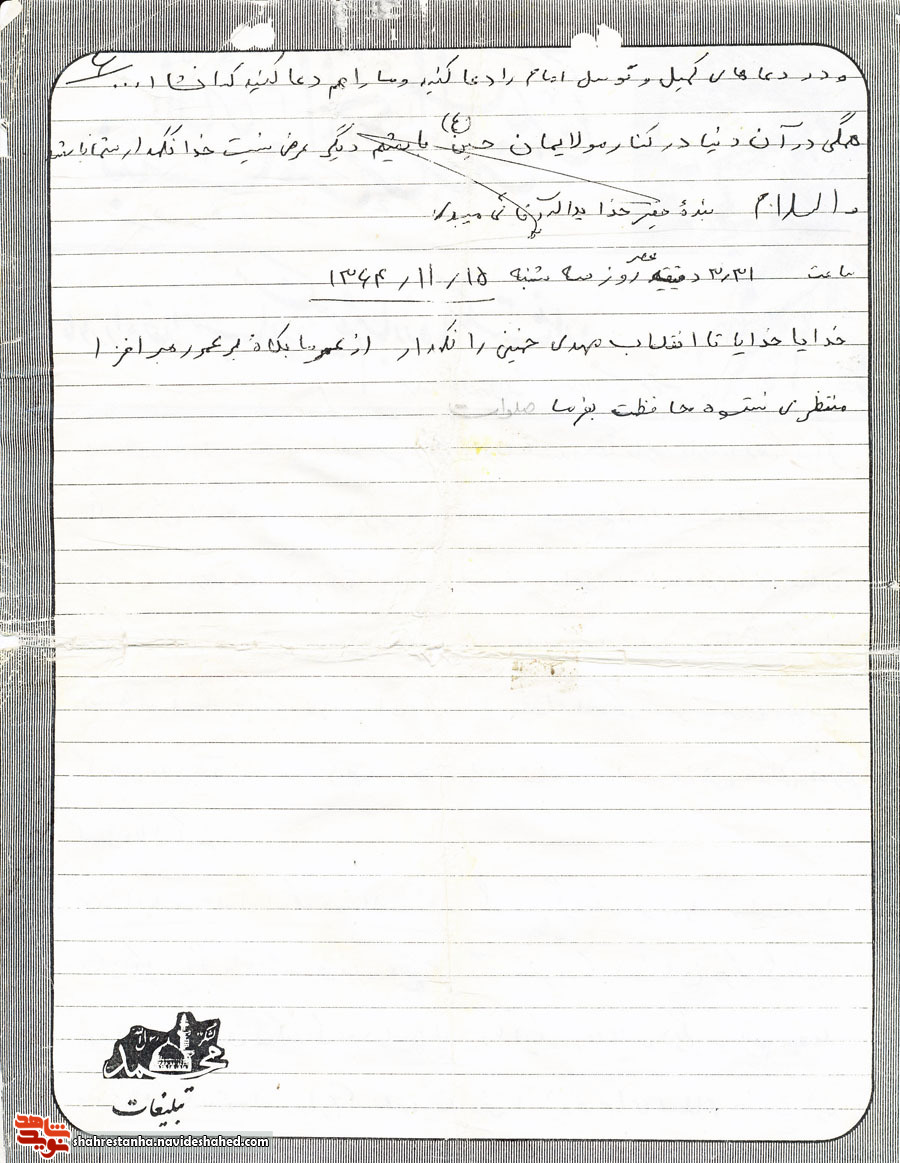 ۶
و در دعاهای کمیل و توسل امام را دعا کنید و ما را هم دعا کنید که انشاا...
همگی در آن دنیا در کنار مولایمان حسین (ع) باشیم دیگر عرض نیست خدا نگهدار شما باشد
والسلام بندهٔ حقیر خدا یدالله
ساعت ۳٫۳۱ دقیقه عصر روز سه شنبه ۱۳۶۴/۱۱/۱۵
خدایا خدایا تا انقلاب مهدی خمینی را نگهدار از عمر ما بکاه بر عمر رهبر افزا
منتظری نستوه محافظت بفرما صلوات
لشکر محمد رسول الله
تبلیغات
شاهد
نوید
shahrestanha.navideshahed.com